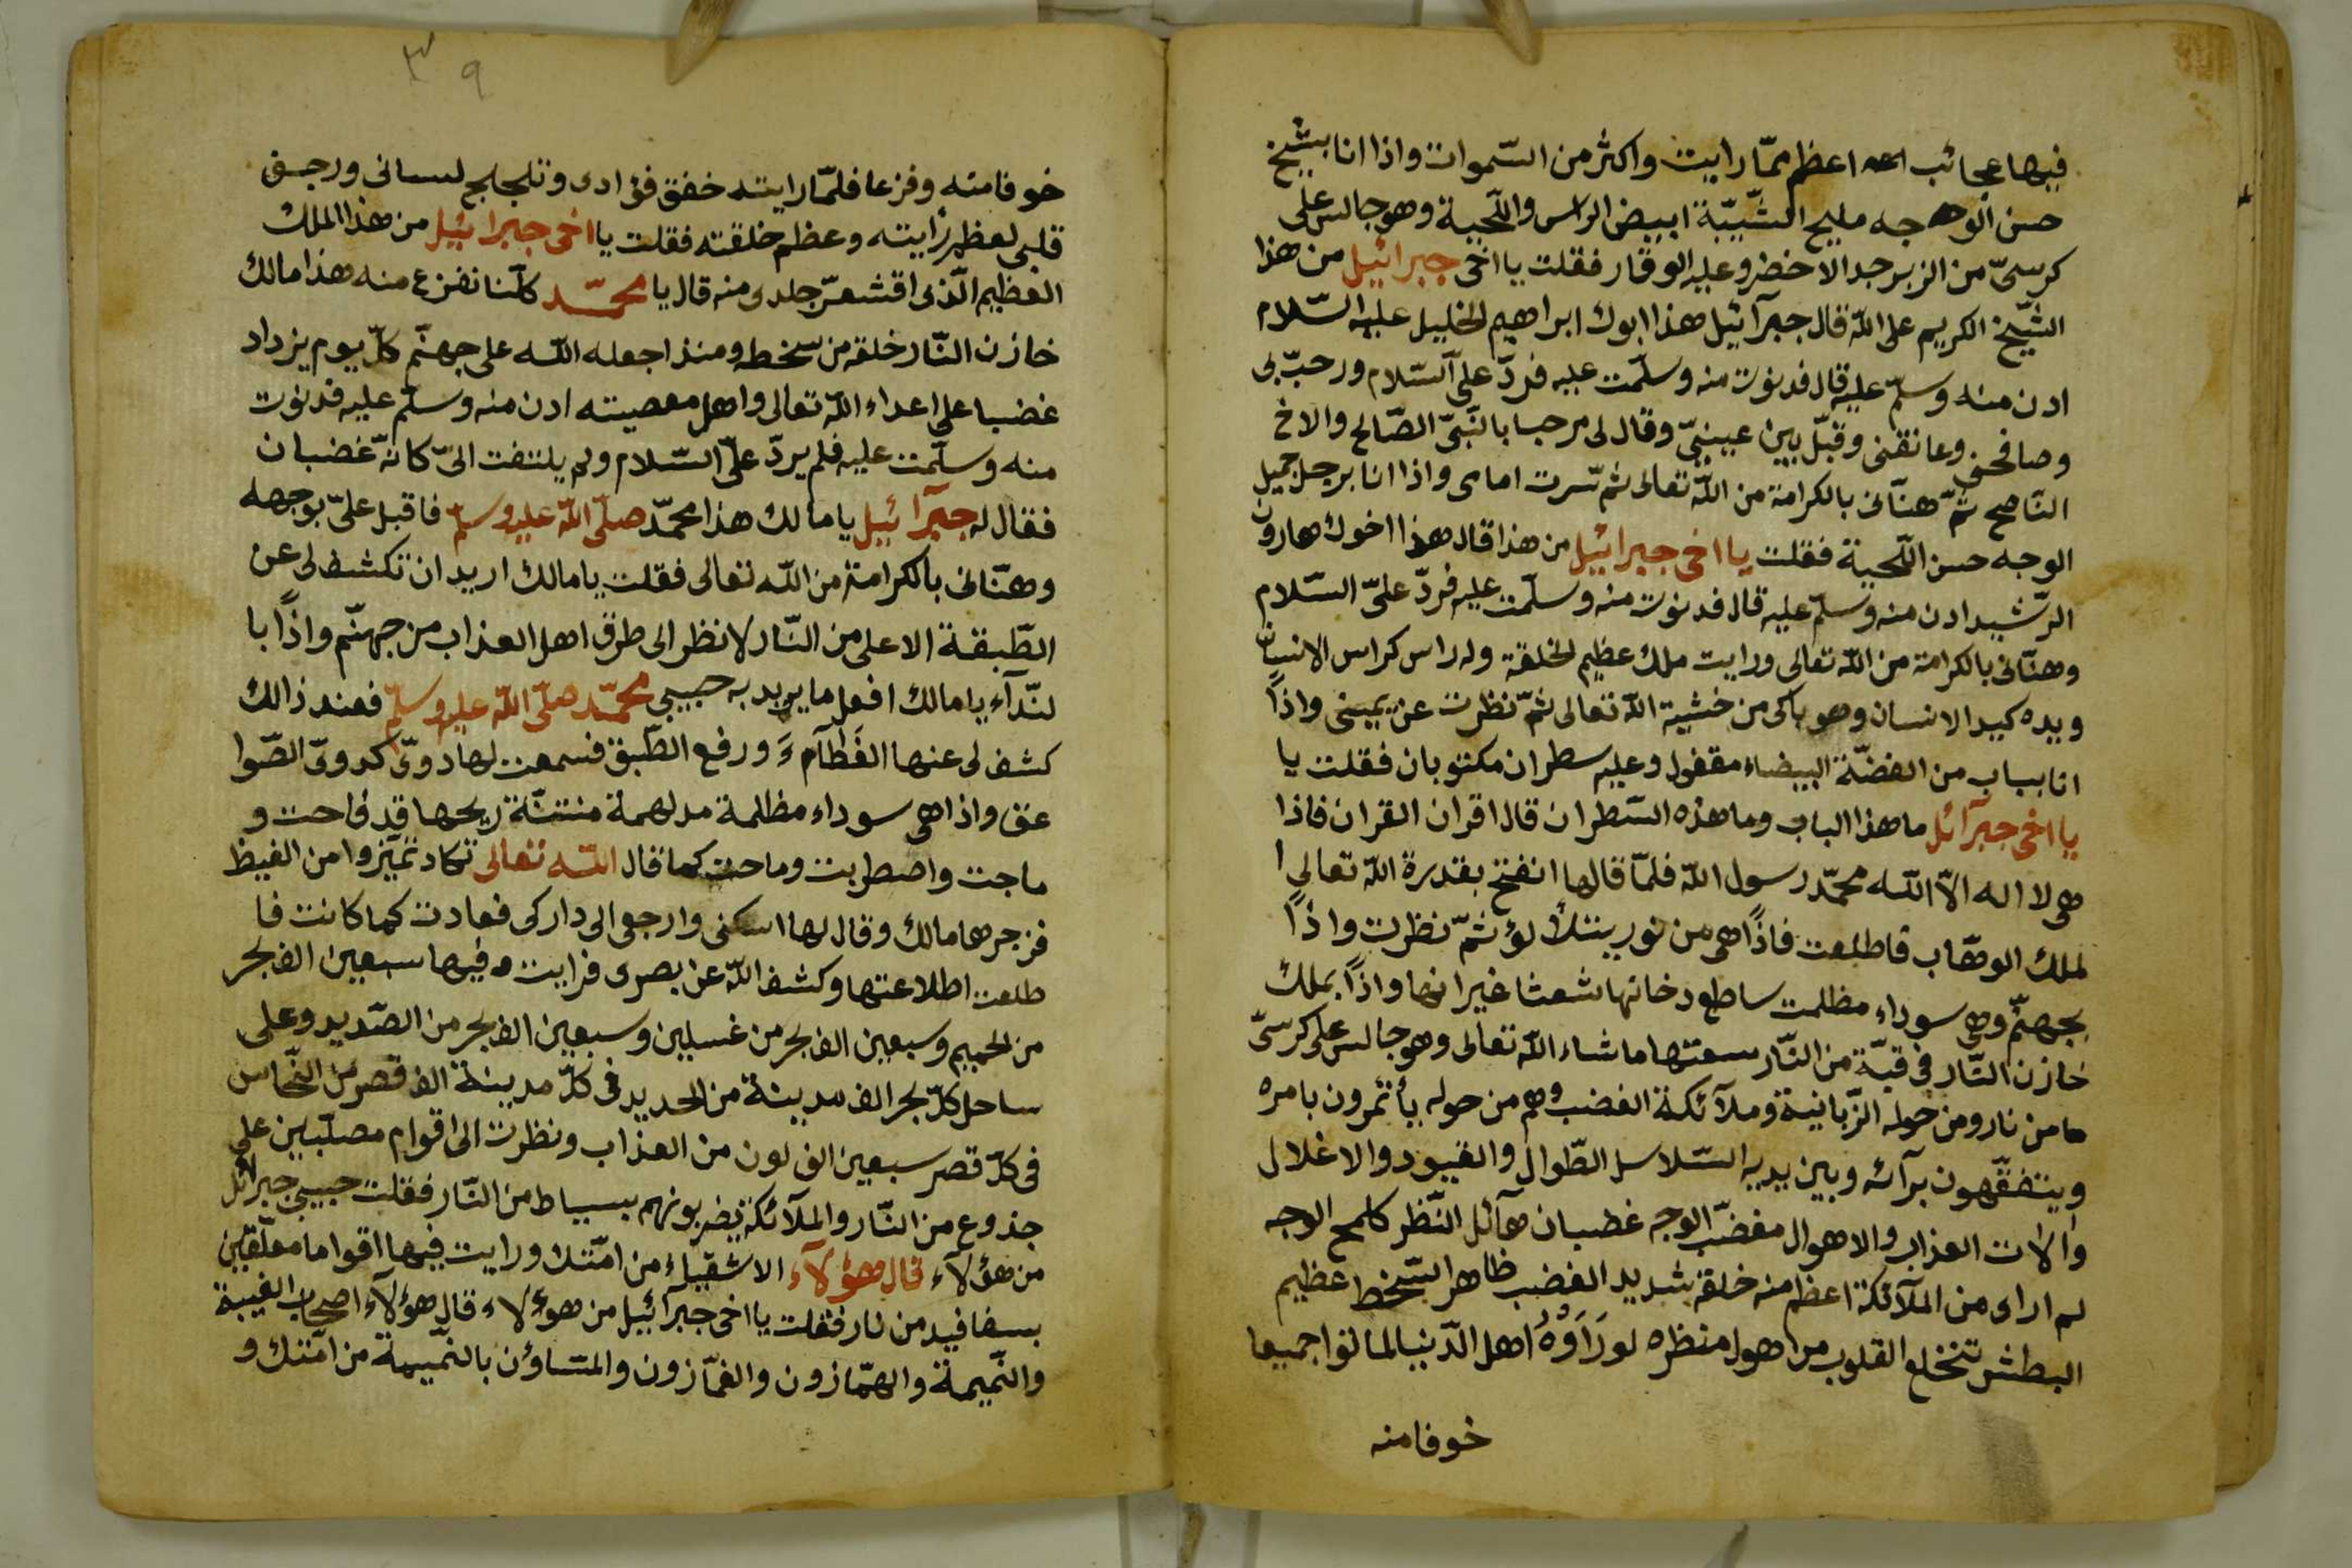 فيها عجائب الله اعظم ممّا رايت واكثر من السّموات واذا انا بشيخ
حسن الوجه مليح الشّيبّة ابيض الراس واللّحية وهو جالس على
كرسىّ من الزبرجد الاخضر وعليه الوقار فقلت يا اخى جبرائيل من هذا
الشّيخ الكريم على اللّه قال جبرآئيل هذا ابوك ابراهيم الخليل عليه السّلام
ادن منه وسلّم عليه قال فدنوت منه وسلّمت عليه فردّ علىّ السّلام ورحبّ بى
وصافحنى وعانقنى وقبّل بين عينىّ وقال لى مرحبا بالنّبىّ الصّالح والاخ
النّاصح ثمّ هنّانى بالكرامة من اللّه تعالى ثمّ سّرت امامى واذا انا برجل جميل
الوجه حسن اللّحية فقلت يا اخى جبرائيل من هذا قال هذا اخوك هارون
الرّشيد ادن منه وسلّم عليه قال فدنوت منه وسلّمت عليه فردّ علىّ السّلام
وهنّانى بالكرامة من اللّه تعالى ورايت ملك عظيم الخلقة وله راس كراس الانسان
ويده كيد الانسان وهو باكى من خشية اللّه تعالى ثمّ نظرت عن يمينى واذاً
انا بباب من الفضّة البيضاء مقفول وعليه سطران مكتوبان فقلت يا
يا اخى جبرآئل ما هذا الباب وما هذه السّطران قال اقران القران فاذا
هى لا اله الاّ اللّه محمّد رسول اللّه فلمّا قالها انفتح بقدرة اللّه تعالى ا
لملك الوهّاب فاطلعت فاذاً هى من نور يتلألؤ ثمّ نظرت واذاً
بجهنّم وهى سوداء مظلمت ساطع دخانها شعثا غيرانها واذاً بملك
خازن النّار فى قبّة من النّار سعتها ما شاء اللّه تعالى وهو جالس على كرسىّ
ها من نار ومن حوله الزّبانية وملآئكة الغضب وهم من حوله يأتمرون بامره
ويتفقّهون برآئه وبين يديه السّلاسل الطّوال والقيود والاغلال
والات العذاب والاهوال مغضّب الوجه غضبان هآئل النّظر كلمح الوجه
لم ارى من الملآئكة اعظم منه خلقة شديد الغضب ظاهر السّخط عظيم
البطش تنخلع القلوب من اهول منظره لو رَاَوْهُ اهل الدّنيا لماتوا جميعا
خوفا منه
٣٩
خوفا منه وفزعا فلمّا رايته خفق فؤادى وتلجلج لسانى ورجف
قلبى لعظم رايته وعظم خلقته فقلت يا اخى جبرائيل من هذا الملك
العظيم الّذى اقشعرّ جلدى منه قال يا محمّد كلّنا نفزع منه هذا مالك
خازن النّار خلقه من سخطه ومنذ اجعله اللّه على جهنّم كلّ يوم يزداد
غضبا على اعداء اللّه تعالى واهل معصيته ادن منه وسلّم عليه فدنوت
منه وسلّمت عليه فلم يردّ علىّ السّلام ولم يلتفت الىّ كانّه غضبان
فقال له جبرآئيل يا مالك هذا محمّد صلّى اللّه عليه وسلّم فاقبل علىّ بوجهه
وهنّانى بالكرامة من اللّه تعالى فقلت يا مالك اريد ان تكشف لى عن
الطّبقة الاعلى من النّار لانظر الى طرق اهل العذاب من جهنّم واذاً با
لنّدآء يا مالك افعل ما يريد به حبيبى محمّد صلّى اللّه عليه وسلّم فعند ذالك
كشف لى عنها الغَطآمءَ ورفع الطّبق فسمعت لها دوىّ كدوىّ الصّوا
عق واذا هى سوداء مظلمة مدلهمة منتنّة ريحها قد فاحت و
ماجت واضطربت وماحت كما قال اللّه تعالى تكاد تميّزوا من الغيظ
فزجرها مالك وقال لها اسكنى وارجعى الى داركى فعادت كما كانت فا
طلعت اطلاعتها وكشف اللّه عن بصرى فرايت فيها سبعين الف بحر
من الحميم وسبعين الف بحر من غسلين وسبعين الف بحر من الصّديد وعلى
ساحل كلّ بحر الف مدينة من الحديد فى كلّ مدينة الف قصر من النّحاس
فى كلّ قصر سبعين الف لون من العذاب ونظرت الى اقوام مصلّبين على
جذوع من النّار والملآئكة يضربونهم بسياط من النّار فقلت حبيبى جبرائل
من هؤلاء قال هؤلآء الاشقيّاء من امّتك ورايت فيها اقواما معلّقين
بسفافيد من نار فقلت يا اخى جبرآئيل من هوءلاء قال هؤلآء اصحاب الغيبة
والنّميمة والهمّازون والغمّازون والمتساؤن بالنّميمة من امّتك و